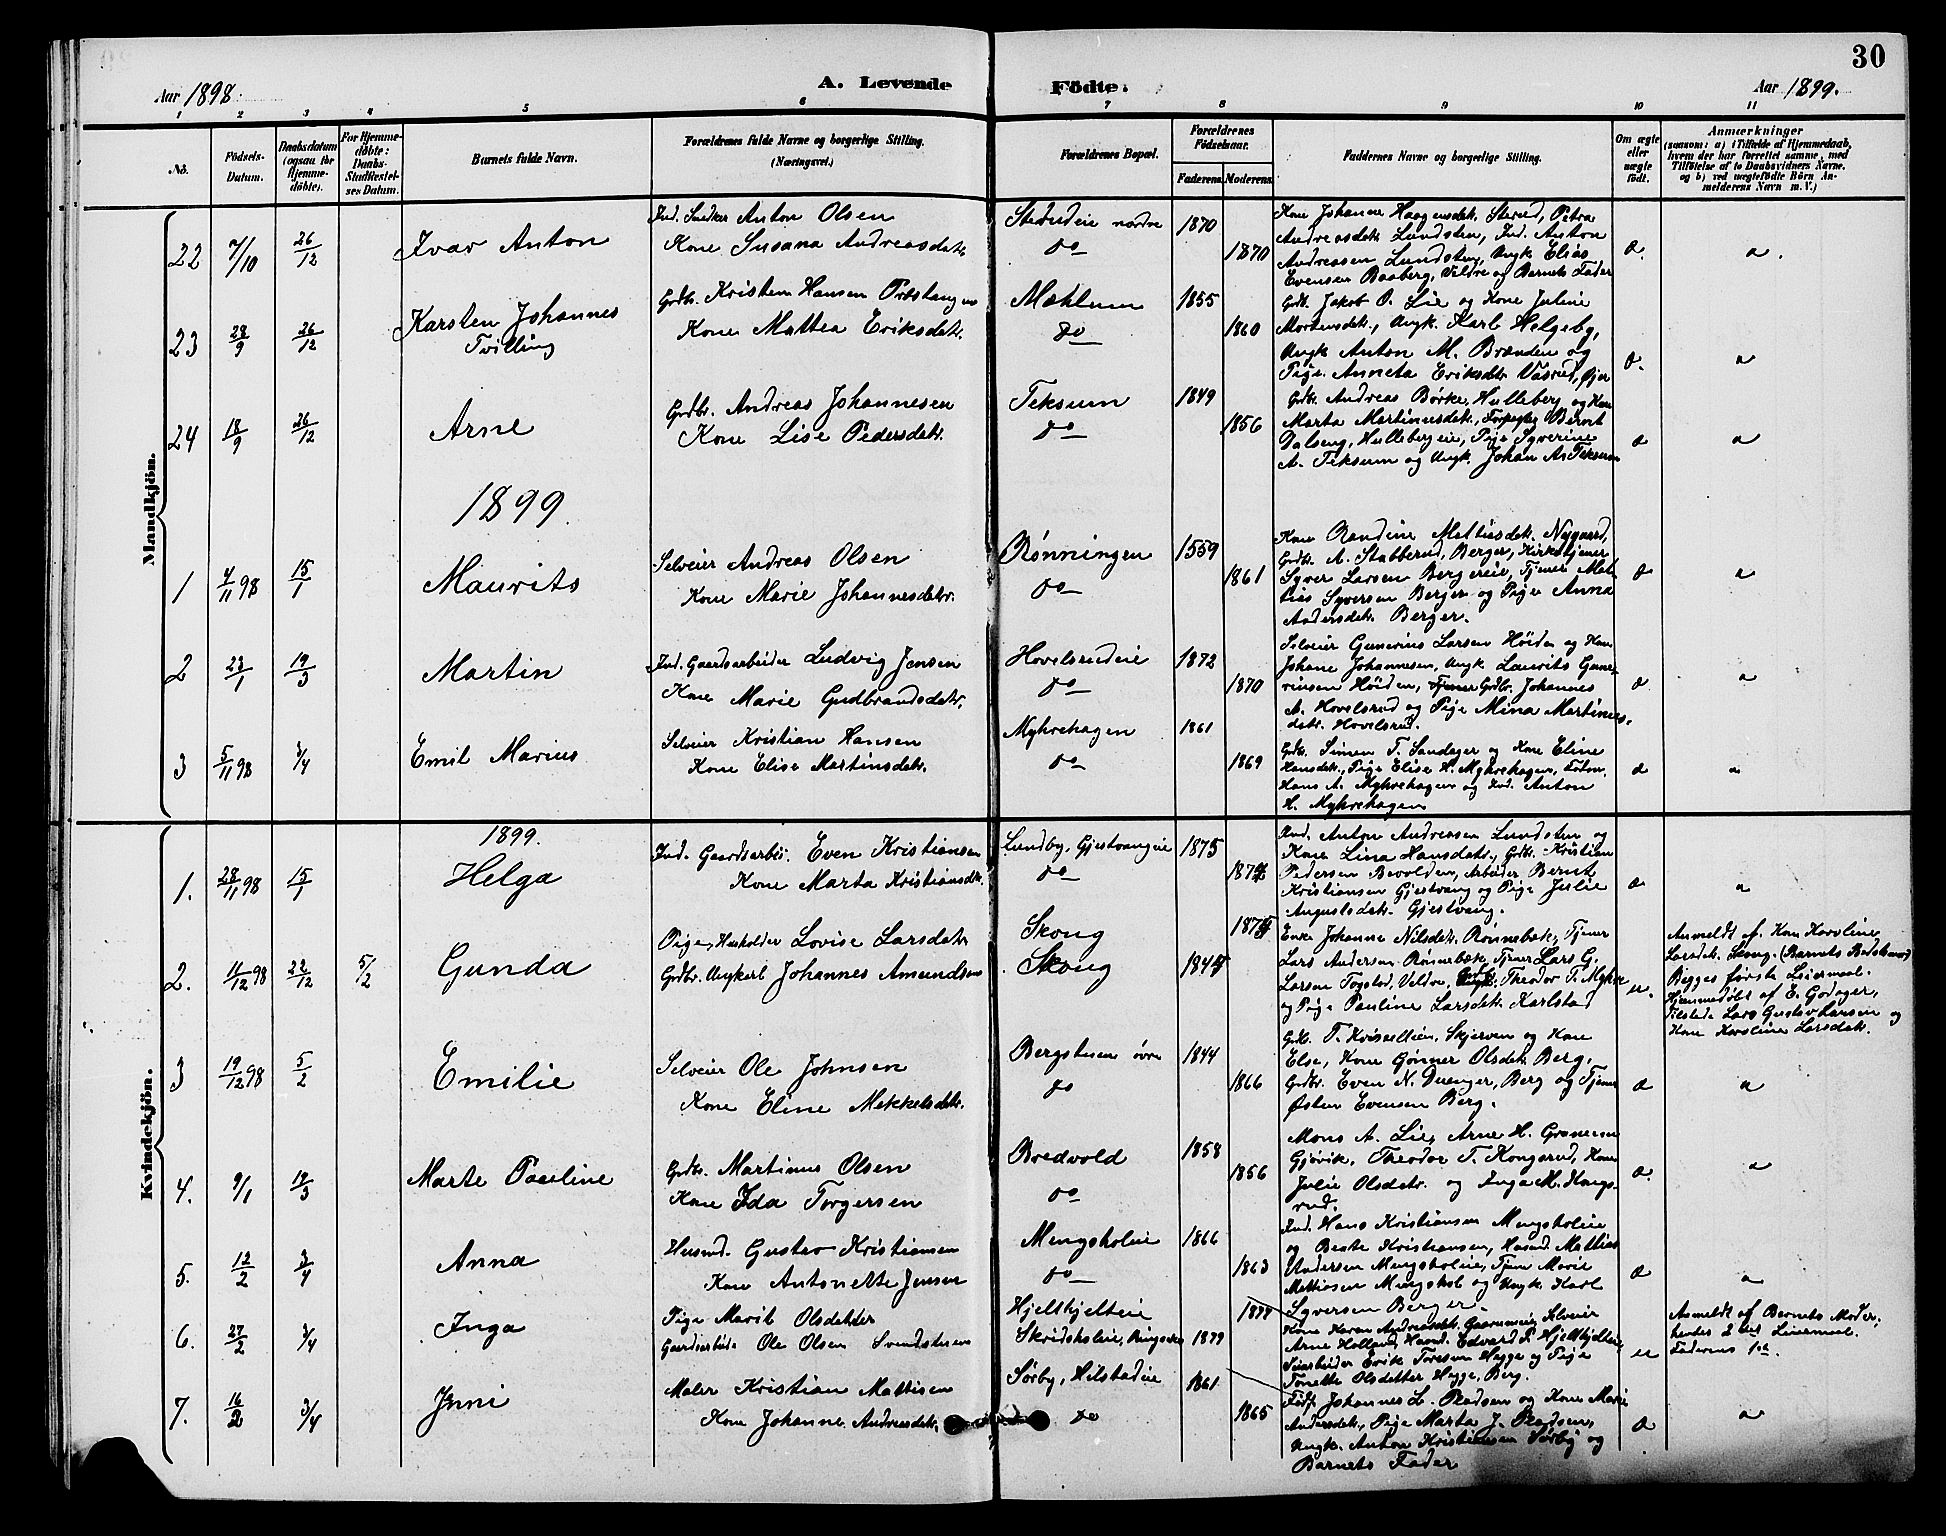 30
Aar 1898. A. Levende Födte. Aar 1899.
1 2 3 4 5 6 7 8 9 10 11
No.
Födsels-Datum.
Daabsdatum (ogsaa for Hjemme-döbte).
For Hjemme-döbte: Daabs-Stadfæstel-ses Datum.
Barnets fulde Navn.
Forældrenes fulde Navne og borgerlige Stilling.
(Næringsvei.)
Forældrenes Bopæl.
Forældrenes Födselsaar.
Faderens. Moderens.
Faddernes Navne og borgerlige Stilling.
Om ægte eller uægte födt.
Anmærkninger
(saasom: a) i Tilfælde af Hjemmedaab,
hvem der har forrettet samme, med
Tilföielse af to Daabsvidners Navne.
og b) ved uægtefödte Börn An-
melderens Navn m. V.)
Mandkjön.
22 7/10 26/12 Ivar Anton
Ind. Snedker Anton Olsen
Kone Susana Andreasdatr.
nordre
do
1870
1870
Kone Johanne Haagensdatr. Sterud, Petra
Andreasdatr. Lundsten, Ind. Anton
Andreassen Lundsten, Ungk. Elias
Evensen Baaberg, Veldre og Barnets Fader
23 28/9 26/12 Karsten Johannes
Tvilling
Grdbr. Kristen Hansen Præstangen
Kone Mattea Eriksdatr.
Mæhlum
do
1855
1860
Grdb. Jakob O. Lie og Kone Juline
Mortensdatr., Ungk. Karl Helgeby,
Ungk. Anton M. Brænden og
Pige Anneta Eriksdatr.
24 18/9 26/12 Arne
Grdbr. Andreas Johannesen
Kone Lise Pedersdatr.
Teksum
do
1849
1856
Grdb. Andreas Börke, Hulleberg og Kone
Marta Martinusdatr., Bernt
Dalseng, Hullebergeie, Pige Syverine
A. Teksum og Ungk. Johan A. Teksum
1899.
1 4/11 98 15/1 Maurits
Selveier Andreas Olsen
Kone Marie Johannesdatr.
Rønningen
do
1559
1861
Kone Randine Mattiasdatr. Nygaard,
Grdb. A. Stabberud, Berger, Kirketjener
Syver Larsen Bergereie, Tjener Mat-
tias Syversen Berger og Pige Anna
Andersdatr. Berger.
2 23/1 19/3 Martin
Ind. Gaardsarbeider Ludvig Jensen
Kone Marie Gudbrandsdatr.
Hovelsrudeie
do
1872
1870
Selveier Gunerius Larsen Höiden og Kone
Johane Johannesen, Ungk. Laurits Gune-
riusen Höiden, Tjener Grdbr. Johannes
A. Hovelsrud og Pige Mina Martinus-
datr. Hovelsrud.
3 5/11 98 3/4 Emil Marius
Selveier Kristian Hansen
Kone Elise Martinsdatr.
Myhrehagen
do
1861
1869
Grdb. Simen T. Sandager og Kone Eline
Hansdatr., Pige Elise H. Myhrehagen,
Hans A. Myhrehagen og Ind. Anton
H. Myhrehagen
Kvindekjön.
1899.
1. 28/11 98 15/1 Helga
Ind. Gaardsarb. Even Kristiansen
Kone Marta Kristiansdr.
Lundby, Gjestvangeie
do
1875
Ind. Anton Andreasen Lundsten og
Kone Lina Hansdatr., Grdb. Kristian
Pedersen Arbeider Bernt
Kristiansen Gjestvang og Pige Julie
Augustsdatr. Gjestvang.
2. 4/12 98 22/12 5/2 Gunda
Pige, Husholder Lovise Larsdatr.
Grdbr. Ungkarl Johannes Amundsen
Skong
Skong
Enke Johanne Nilsdatr. Rønnebæk, Tjener
Lars Andersen Rønnebæk, Tjener Lars G.
Larsen Togstad, Veldre, Theodor T. Myhre
og Pige Pauline Larsdatr. Karlstad
Anmeldt af Kone Karoline
Larsdatr. Skong. (Barnets Bedstemor)
Begges første Leiermaal.
Hjemmedöbt af E. Godager,
Tilstede Lars Gustav Larsen og
Kone Karoline Larsdatr.
3 19/12 98 5/2 Emilie
Selveier Ole Johnsen
Kone Eline Mekkelsdatr.
övre
do
1844
1866
Skjerven og Kone
Else, Kone Gønner Olsdatr. Berg.
Grdbr. Even N. Deenger, Berg og Tjener
Østen Evensen Berg.
4. 9/1 19/3 Marte Pauline
Grdbr. Martinus Olsen
Kone Ida Torgersen
Bredvold
do
1858
1856
Mons A. Lie, Arne H.
Gjövik, Theodor T. Kongsrud, Kone
Julie Olsdatr. og Inga M. Kongs-
rud.
5. 12/2 3/4 Anna
Husmd. Gustav Kristiansen
Kone Antonette Jensen
Mengsholeie
do
1866
1863
Ind. Hans Kristiansen Mengsholeie
og Beate Kristiansen, Husmd. Mattias
Andersen Mengsholeie, Tjener Marie
Mattiasen Mengshol og Ungk. Karl
Syversen Berger.
6. 27/2 3/4 Inga
Pige Marit Olsdatter
Gaardsarbeider Ole Olsen
Hjelthjelteie
Skridsholeie, Ringsaker
1879
Kone Karen Andreasdatr. Selveier
Arne Holland, Husmd. Edvard P. Hjelthjelteie,
Erik Toresen Hegge og Pige
Tonette Olsdatter Hegge, Berg.
Anmeldt af Barnets Moder,
hendes 2det Leiermaal.
Faderens 1ste.
7. 16/2 3/4 Jenni
Maler Kristian Mattisen
Kone Johanne Andreasdatr.
Sörby, Hilstadeie
do
1861
1865
Johannes L. Pladsen og Kone Marie
Andersdatr., Pige Marta J. Pladsen,
Ungk. Anton Kristiansen Sörby og
Barnets Fader